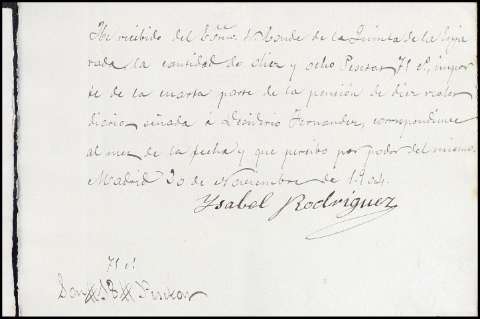 He recibido del Excmo. Sr. Conde de la Quinta de la Enja
rada la cantidad de diez y ocho Pesetas 71 cs, impor
te de la cuarta parte de la pensión de diez reales
diarios señada á Desiderio Fernandez, correspondiente
al mes de la fecha y que percibo por poder del mismo.
Madrid 30 de Noviembre de 1904.
Ysabel Rodriguez
71 cs
Son 18